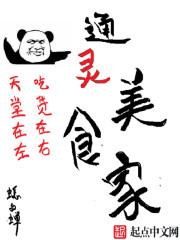 通灵
美食家
吃货在右
天堂在左
起点中文网